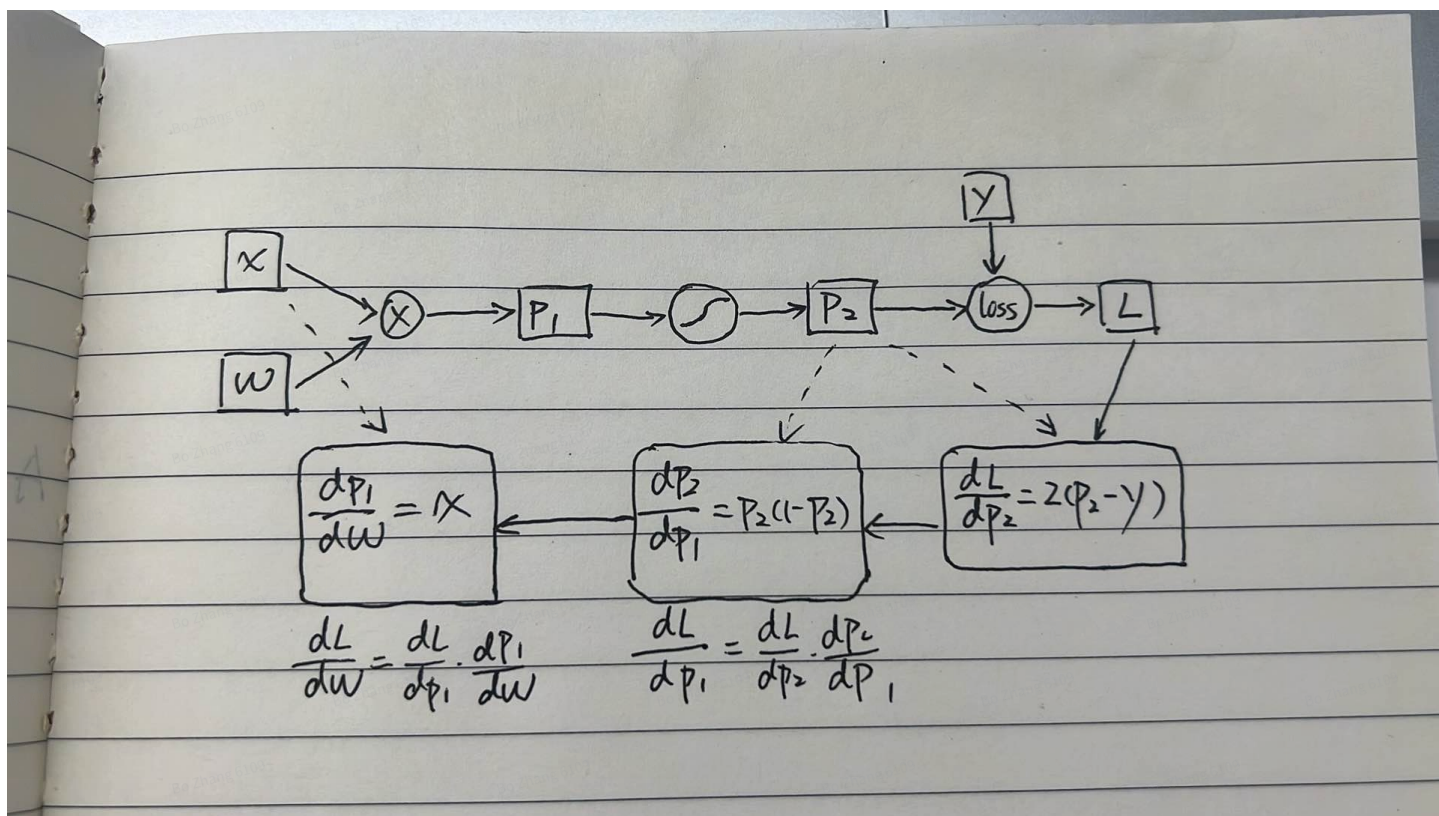 y
x
× P₁ P₂ loss L
w
dP₁/dw = x
dP₂/dP₁ = P₂(1-P₂)
dL/dP₂ = 2(P₂-y)
dL/dw = dL/dP₁ · dP₁/dw
dL/dP₁ = dL/dP₂ · dP₂/dP₁